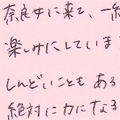 奈良女に来て、一緒
楽しみにしていま
しんどいことも ある
絶対に力になる